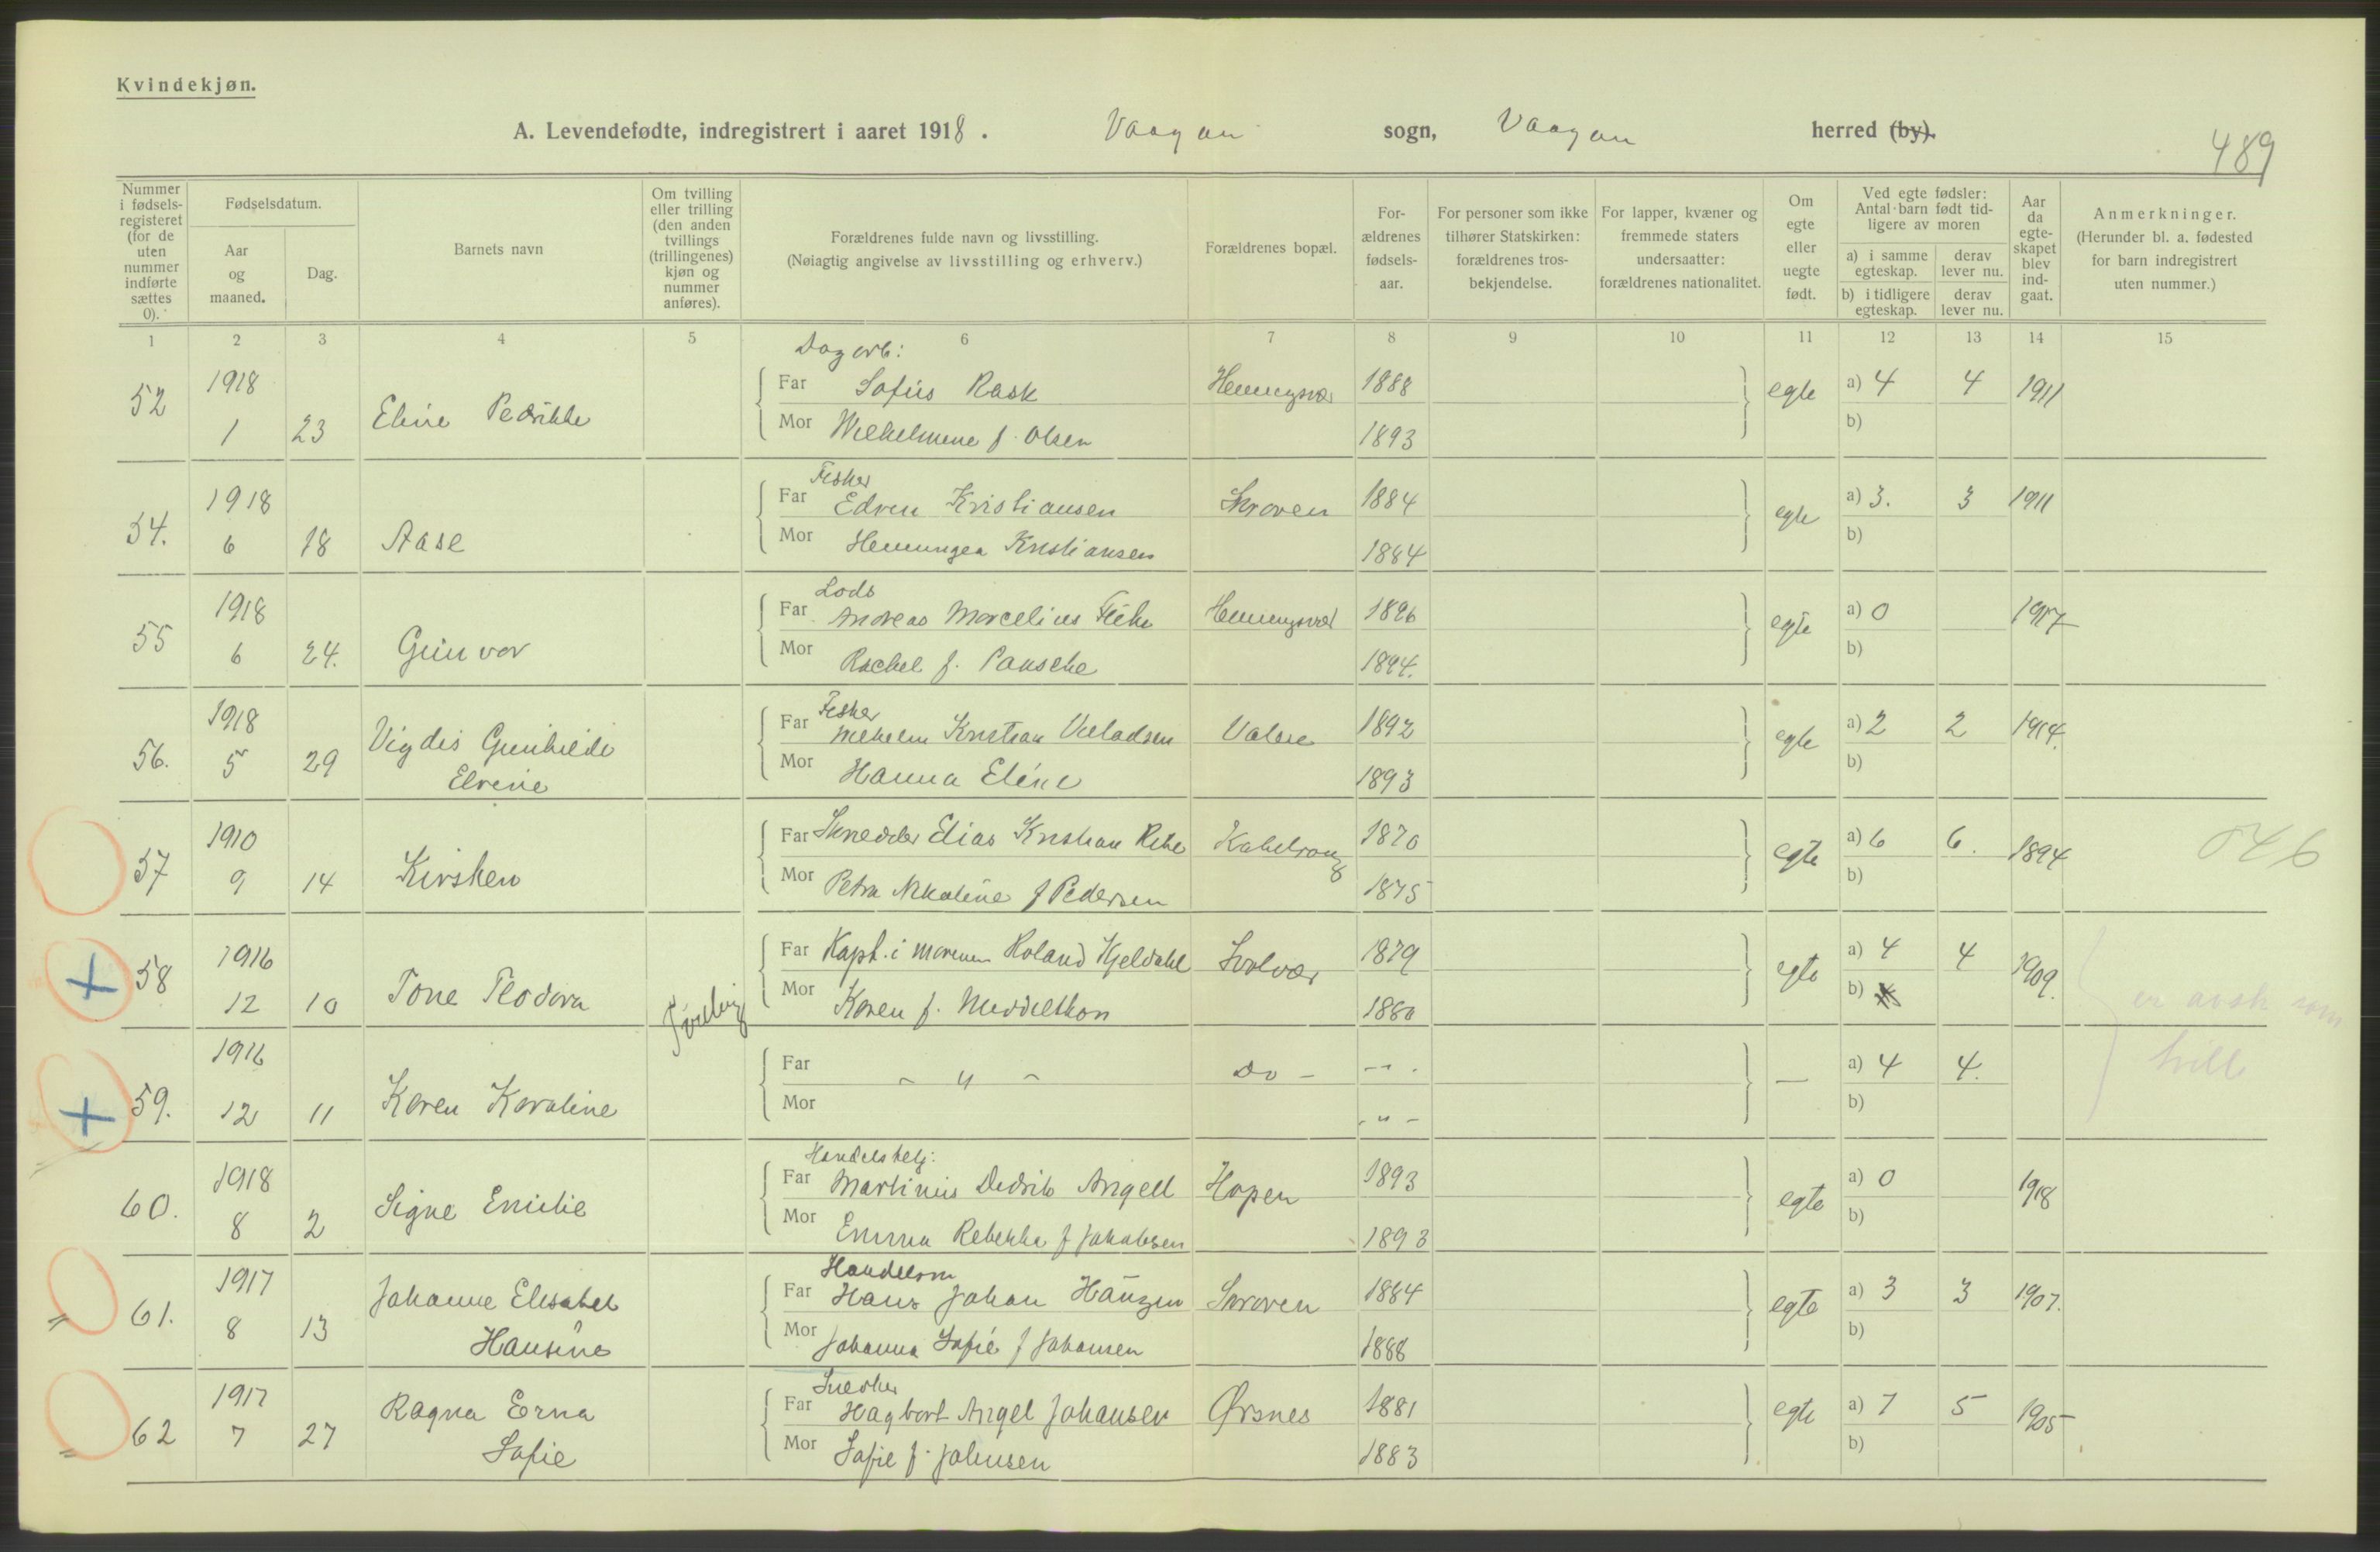 Kvindekjøn.
A. Levendefødte, indregistrert i aaret 1918. Vaagan sogn, Vaagan herred (by).
489
Nummer i fødselsregisteret (for de uten nummer indførte sættes 0).
Fødselsdatum.
Aar og maaned.
Dag.
Barnets navn
Om tvilling eller trilling (den anden tvillings (trillingenes) kjøn og nummer anføres).
Forældrenes fulde navn og livsstilling.
(Nøiagtig angivelse av livsstilling og erhverv.)
Forældrenes bopæl.
Forældrenes fødselsaar.
For personer som ikke tilhører Statskirken: forældrenes trosbekjendelse.
For lapper, kvæner og fremmede staters undersaatter: forældrenes nationalitet.
Om egte eller uegte født.
Ved egte fødsler: Antal barn født tidligere av moren
a) i samme egteskap. derav lever nu.
b) i tidligere egteskap. derav lever nu.
Aar da egteskapet blev indgaat.
Anmerkninger.
(Herunder bl. a. fødested for barn indregistrert uten nummer.)
1 2 3 4 5 6 7 8 9 10 11 12 13 14 15
Dagarb:
52 1918 Far Sofus Rask Henningsvær 1888 egte a) 4 4 1911
1 23 Eline Pedrikke Mor Wilhelmine f. Olsen 1893 b)
Fisker
54. 1918 Far Edvin Kristiansen Skroven 1884 egte a) 3. 3 1911
6 18 Aase Mor Kristiansen 1884 b)
Lods
55 1918 Far Andreas Marcelius Henningsvær 1896 egte a) 0 1917
6 24. Gunvor Mor Rachel f. 1894. b)
Fisker
56. 1918 Vigdis Gunhilde Far Vilhelm Kristian 1892 egte a) 2 2 1914.
5 29 Elvine Mor Hanna Eline 1893 b)
57 1910 Far Skredder Elias Kristian Kabelvaag 1870 egte a) 6 6. 1894 046
9 14 Kirsten Mor Petra Nikoline f Pedersen 1875 b)
58 1916 Far Kapt. i marinen Roland Kjeldahl Svolvær 1879 egte a) 4 4 1909.
12 10 Tone Teodora Tvilling Mor Karen f. Middelthon 1880 b)
59. 1916 Far - " - Do - - - . — a) 4 4.
12 11 Karen Karoline Mor - " - b)
tvill
Handelsbetj:
60. 1918 Far Martinius Dedrik Angell Hopen 1893 egte a) 0 1918
8 2 Signe Emilie Mor Emma Rebekka f Jakobsen 1893 b)
Handelsm
61. 1917 Johanne Elisabet Far Hans Johan Hanzen Skroven 1884 egte a) 3 3 1907.
8 13 Hansine Mor Johanna Sofie f Johansen 1888 b)
Snedker
62 1917 Ragna Erna Far Hagbart Angel Johansen Ørsnes 1881 egte a) 7 5 1905
7 27 Sofie Mor Sofie f. Johnsen 1883 b)